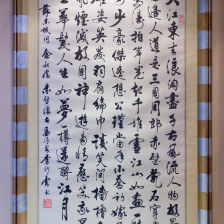 大江東去浪淘盡千古風流人物故壘
西邊人道是三國周郎赤壁亂石穿空
驚濤拍岸捲起千堆雪江山如畫一時
多少豪傑遙想公瑾當年小喬初嫁
了雄姿英發羽扇綸巾談笑間檣櫓
灰飛煙滅故國神遊多情應笑我早
生華髮人生如夢一樽還酹江月
蘇東坡詞念奴嬌赤壁懷古